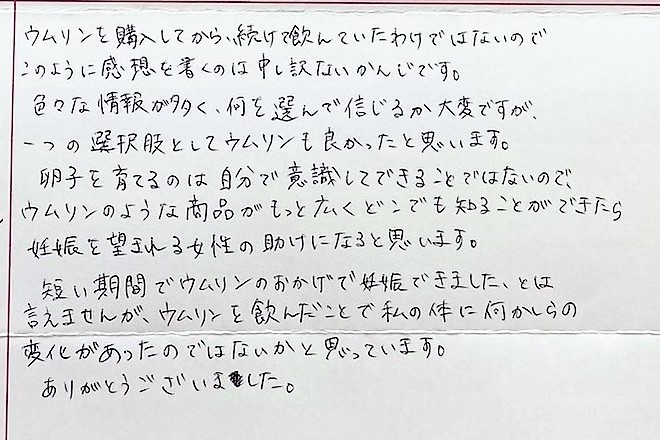 ウムリンを購入してから、続けて飲んでいたわけではないので
このように感想を書くのは申し訳ないかんじです。
色々な情報が多く、何を選んで信じるか大変ですが、
一つの選択肢としてウムリンも良かったと思います。
卵子を育てるのは自分で意識してできることではないので、
ウムリンのような商品がもっと広くどこでも知ることができたら
妊娠を望まれる女性の助けになると思います。
短い期間でウムリンのおかげで妊娠できました、とは
言えませんが、ウムリンを飲んだことで私の体に何かしらの
変化があったのではないかと思っています。
ありがとうございました。